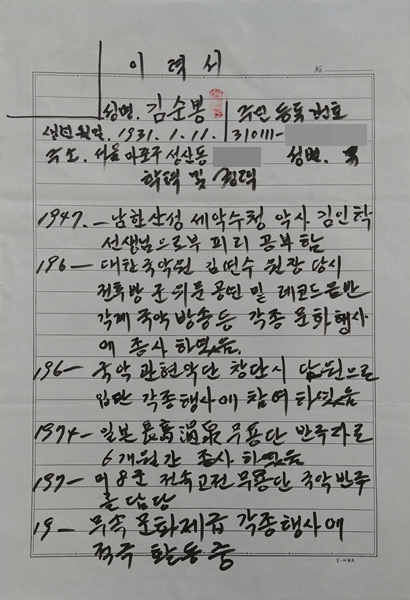 이력서
No
성명. 김순봉 주민등록번호
생년월일. 1931. 1. 11. 310111-
주소. 서울 마포구 성산동 성별.
학력 및 경력
1947. — 남한산성 세악수청 악사 김인학
선생님으로부 피리 공부 함
196 — 대한국악원 김연수 원장 당시
전후방 군 위문 공연 및 레코드 음반
각계 국악 방송 등 각종 문화행사
에 종사 하였음.
196 — 국악 관현악단 창단시 단원으로
입단 각종행사에 참여 하였음
1974 — 일본 温泉 무용단 반주자로
6개월간 종사 하였음
197 — 미8군 전속고전 무용단 국악반주
를 담당
19 — 무속 문화제급 각종행사에
적극 활동 중
E-HWA